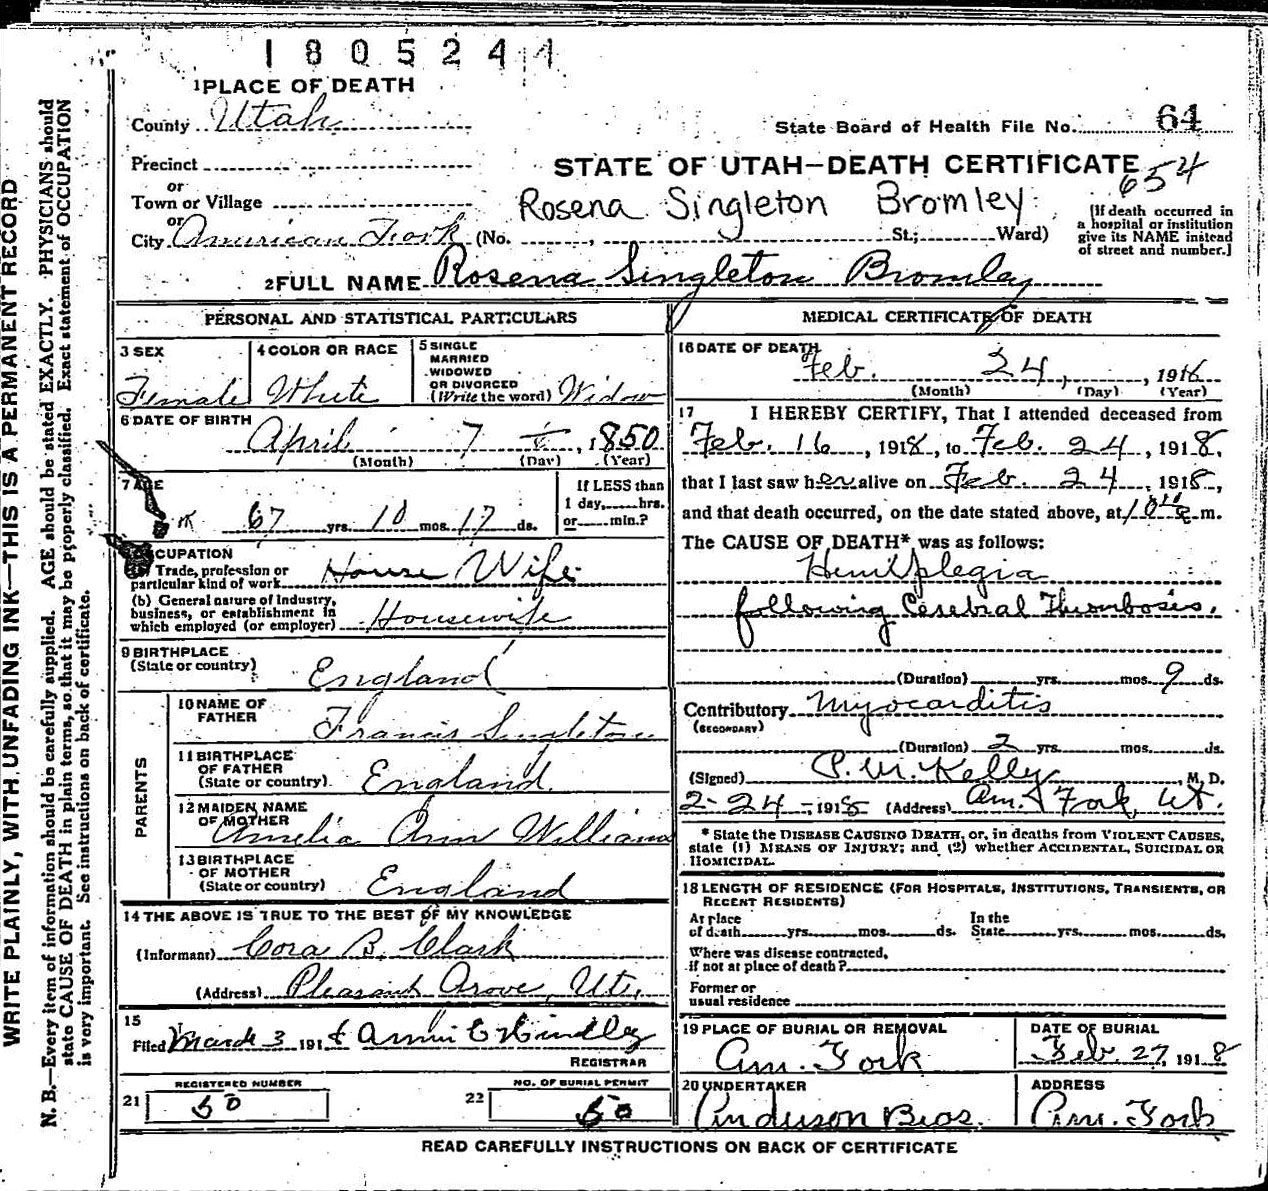 1805244
1 PLACE OF DEATH
County Utah
State Board of Health File No. 64
Precinct
STATE OF UTAH—DEATH CERTIFICATE
654
or
Town or Village
Rosena Singleton Bromley
or
City American Fork (No. , St.; Ward)
[If death occurred in
a hospital or institution
give its NAME instead
of street and number.]
2 FULL NAME Rosena Singleton Bromley
PERSONAL AND STATISTICAL PARTICULARS
3 SEX
Female
4 COLOR OR RACE
White
5 SINGLE
MARRIED
WIDOWED
OR DIVORCED
(Write the word) Widow
6 DATE OF BIRTH
April 7, 1850
(Month) (Day) (Year)
7 AGE
67 yrs. 10 mos. 17 ds.
If LESS than
1 day, hrs.
or min.?
OCCUPATION
Trade, profession or
particular kind of work House Wife
(b) General nature of industry,
business, or establishment in
which employed (or employer) Housewife
9 BIRTHPLACE
(State or country) England
PARENTS
10 NAME OF
FATHER Francis Singleton
11 BIRTHPLACE
OF FATHER
(State or country) England
12 MAIDEN NAME
OF MOTHER Amelia Ann William
13 BIRTHPLACE
OF MOTHER
(State or country) England
14 THE ABOVE IS TRUE TO THE BEST OF MY KNOWLEDGE
(Informant) Cora B. Clark
(Address) Pleasant Grove, Ut.
15
Filed March 3 191 Hindley
REGISTRAR
REGISTERED NUMBER
21 50
NO. OF BURIAL PERMIT
22 50
MEDICAL CERTIFICATE OF DEATH
16 DATE OF DEATH
Feb. 24, , 1918
(Month) (Day) (Year)
17 I HEREBY CERTIFY, That I attended deceased from
Feb. 16, 1918, to Feb. 24, 1918,
that I last saw her alive on Feb. 24, 1918,
and that death occurred, on the date stated above, at m.
The CAUSE OF DEATH* was as follows:
Hemiplegia
following Cerebral Thrombosis.
(Duration) yrs. mos. 9 ds.
Contributory Myocarditis
(SECONDARY)
(Duration) 2 yrs. mos. ds.
(Signed) P. M. Kelly, M. D.
2-24-, 1918 (Address) Am. Fork, Ut.
* State the DISEASE CAUSING DEATH, or, in deaths from VIOLENT CAUSES,
state (1) MEANS OF INJURY; and (2) whether ACCIDENTAL, SUICIDAL OR
HOMICIDAL.
18 LENGTH OF RESIDENCE (FOR HOSPITALS, INSTITUTIONS, TRANSIENTS, OR
RECENT RESIDENTS)
At place
of death yrs. mos. ds.
In the
State yrs. mos. ds.
Where was disease contracted,
if not at place of death?
Former or
usual residence
19 PLACE OF BURIAL OR REMOVAL
Am. Fork
DATE OF BURIAL
Feb. 27, 1918
20 UNDERTAKER
Anderson Bros.
ADDRESS
Am. Fork
READ CAREFULLY INSTRUCTIONS ON BACK OF CERTIFICATE
WRITE PLAINLY, WITH UNFADING INK—THIS IS A PERMANENT RECORD
N. B.—Every item of information should be carefully supplied. AGE should be stated EXACTLY. PHYSICIANS should
state CAUSE OF DEATH in plain terms, so that it may be properly classified. Exact statement of OCCUPATION
is very important. See instructions on back of certificate.